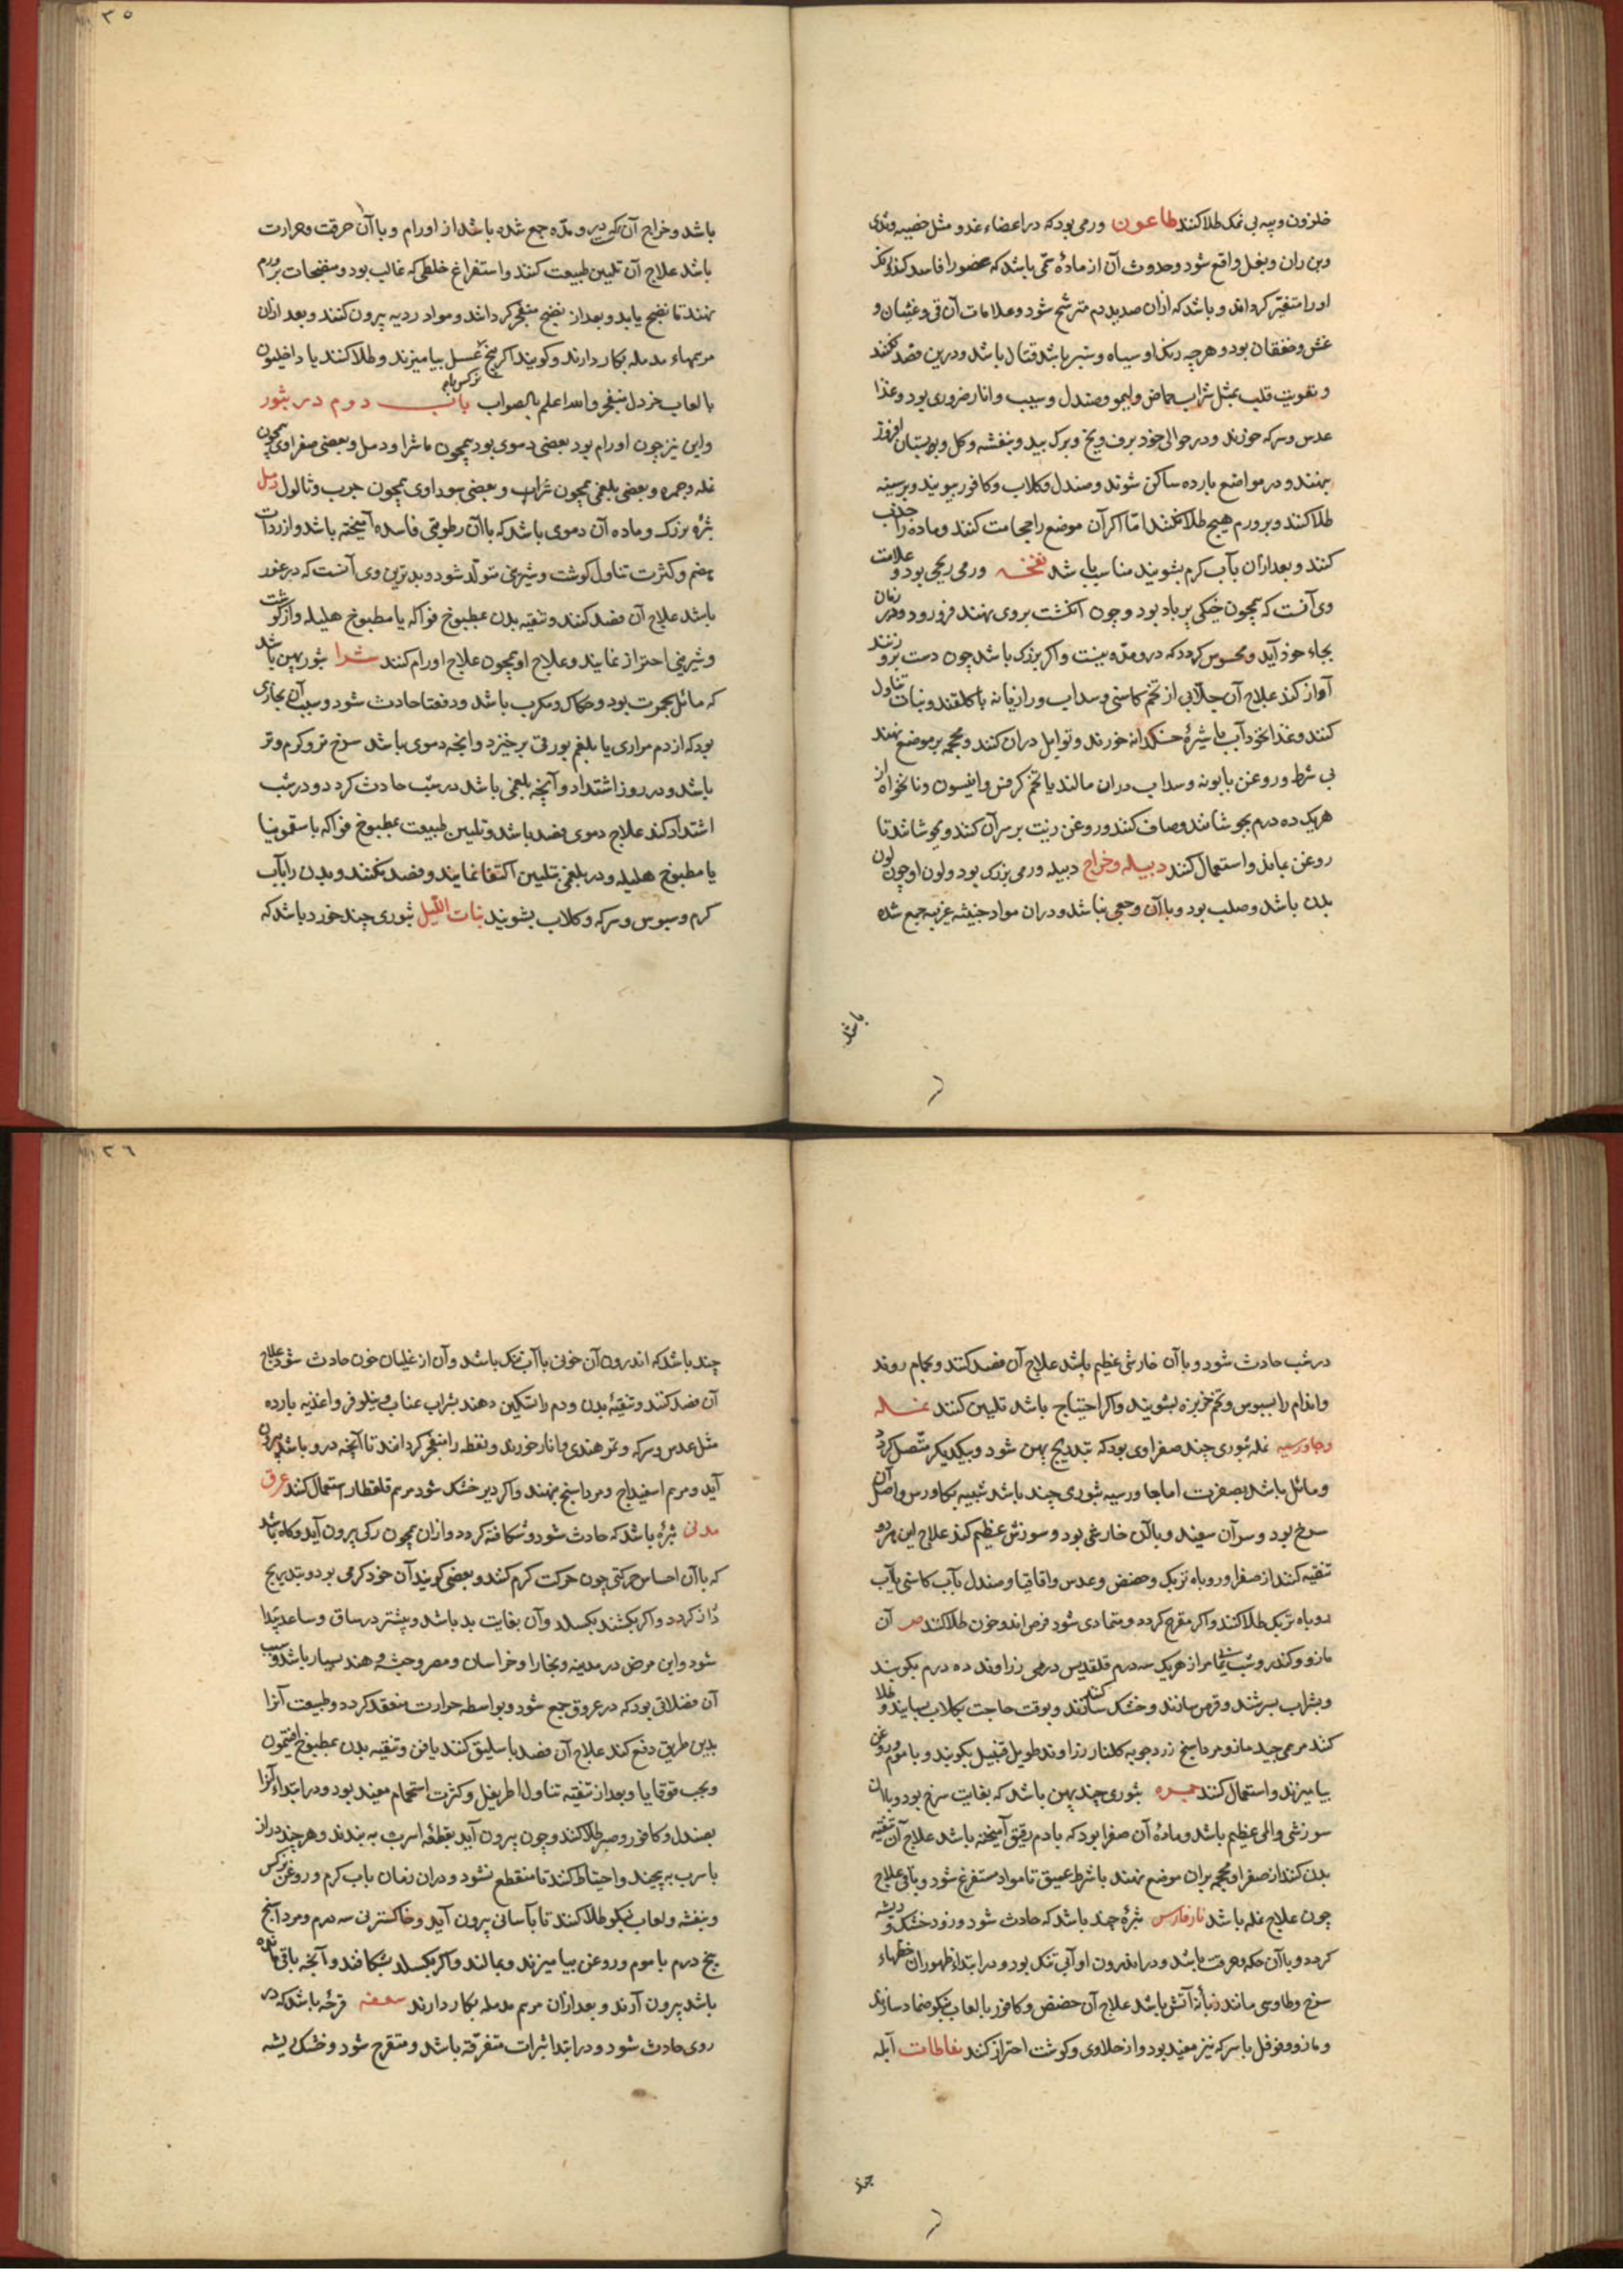 حلزون و پیه بی نمک طلا کنند طاعون ورمی بود که در اعضاء غدد مثل خصیه و ثدی
و بن ران و بغل واقع شود و حدوث آن از مادۀ سمی باشد که عضو را فاسد کند
او را متغیر گرداند و باشد که ازان صدید و دم مترشح شود و علامات آن قی و غثیان و
غشی و خفقان بود و هرچه رنک او سیاه و سبز باشد قتال باشد و درین فصد نکنند
و تقویت قلب بمثل شراب حماض و لیمو و صندل و سیب و انار ضروری بود و غذا
عدس و سرکه خورند و در حوالی خود برف و یخ و برک بید و بنفشه و کل و بوستان افروز
بنهند و در مواضع بارده ساکن شوند و صندل و کلاب و کافور بیویند و بر سینه
طلا کنند و بر ورم هیچ طلا نکنند اما اکر آن موضع را حجامت کنند و ماده را جذب
کنند و بعد ازان بآب کرم بشویند مناسب باشد نفخه ورمی ریحی بود و علامت
وی آنست که همچون خیکی پر باد بود و چون انکشت بروی نهند فرو رود و در زمان
بجاء خود آید و محسوس کردد که درو مده نیست و اکر بزرک باشد چون دست برو زنند
آواز کند علاج آن جلابی از تخم کاسنی و سداب و رازیانه با کلقند و نبات تناول
کنند و غذا نخودآب با شیرۀ خسکدانه خورند و توابل دران کنند و محجمه بر موضع نهند
بی شرط و روغن بابونه و سداب دران مالند یا تخم کرفس و انیسون و نانخواه از
هریک ده درم بجوشانند و صاف کنند و روغن زیت بر سر آن کنند و بجوشانند تا
روغن بماند و استعمال کنند دبیله و خراج دبیله ورمی بزرک بود و لون او چون لون
بدن باشد و صلب بود و با آن وجعی نباشد و دران مواد خبیثه غریبه جمع شده
باشد
باشد و خراج آن که دیر و مده جمع شده باشد از اورام و با آن حرقت و حرارت
باشد علاج آن تلیین طبیعت کنند و استفراغ خلطی که غالب بود و منضجات بر ورم
نهند تا نضج یابد و بعد از نضج منفجر کردانند و مواد ردیه بیرون کنند و بعد ازان
مرهمهاء مدمله بکار دارند و کویند اکر بیخ نرکس با عسل بیامیزند و طلا کنند یا داخلیون
با لعاب خردل بنفجر والله اعلم بالصواب باب دوم در بثور
و این نیز چون اورام بود بعضی دموی بود همچون ماشرا و دمل و بعضی صفراوی همچون
نمله و جمره و بعضی بلغمی همچون شرا و بعضی سوداوی همچون جرب و ثالول دمل
بثرۀ بزرک و ماده آن دموی باشد که با آن رطوبتی فاسده آمیخته باشد و از ردائت
هضم و کثرت تناول کوشت و شیرینی متولد شود و بدترین وی آنست که در غور
باشد علاج آن فصد کنند و تنقیه بدن بمطبوخ فواکه یا مطبوخ هلیله و از کوشت
و شیرینی احتراز نمایند و علاج او همچون علاج اورام کنند شرا بثور پهن باشد
که مائل بحمرت بود و حکاک و مکرب باشد و دفعتا حادث شود و سبب آن بخاری
بود که از دم مراری یا بلغم بورقی برخیزد و آنچه دموی باشد سرخ تر و کرم تر
باشد و در روز اشتداد و آنچه بلغمی باشد در شب حادث کردد و در شب
اشتداد کند علاج دموی فصد باشد و تلیین طبیعت بمطبوخ فواکه با سقمونیا
یا مطبوخ هلیله و در بلغمی بتلیین اکتفا نمایند و فصد نکنند و بدن را بآب
کرم و سبوس و سرکه و کلاب بشویند بنات اللیل بثوری چند خورد باشد که
در شب حادث شود و با آن خارشی عظیم باشد علاج آن فصد کنند و بحمام روند
و اندام را بسبوس و تخم خربزه بشویند و اکر احتیاج باشد تلیین کنند نمله
و جاورسیه نمله بثوری چند صفراوی بود که بتدریج پهن شود و بیکدیکر متصل کردد
و مائل باشد بصفرت اما جاورسیه بثوری چند باشد شبیه بکاورس و اصل آن
سرخ بود و سر آن سفید و با آن خارشی بود و سوزش عظیم کند علاج این هر دو
تنقیه کنند از صفرا و روباه تربک و حضض و عدس و اقاقیا و صندل بآب کاسنی یا آب
روباه تربک طلا کنند و اکر مقرح کردد و متمادی شود قرص اندرخون طلا کنند ص آن
مازو و کندر و شب یمانی از هریک سه درم قلقدیس درمی زراوند ده درم بکوبند
و بشراب بسرشند و قرص سازند و خشک کنند و بوقت حاجت بکلاب بسایند و طلا
کنند مرهمی جید مازو مرداسنج زردچوبه کلنار زراوند طویل قنبیل بکوبند و با موم و روغن
بیامیزند و استعمال کنند جمره بثوری چند پهن باشد که بغایت سرخ بود و با آن
سوزشی و المی عظیم باشد و مادۀ آن صفرا بود که با دم رقیق آمیخته باشد علاج آن تنقیه
بدن کنند از صفرا و محجمه بران موضع نهند با شرط عمیق تا مواد مستفرغ شود و باقی علاج
چون علاج نمله باشد نار فارسی بثرۀ چند باشد که حادث شود و زود خشک ریشه
کردد و با آن حکه و حرقت باشد و در اندرون او آبی تنک بود و در ابتداء ظهور ان خطهاء
سرخ و طاوسی مانند زبانۀ آتش باشد علاج آن حضض و کافور با لعاب نیکو ضماد سازند
و مازو و فوفل با سرکه نیز مفید بود و از حلاوی و کوشت احتراز کنند نفاطات آبله
چند
چند باشد که اندرون آن خونی یا آب تنک باشد و آن از غلیان خون حادث شود علاج
آن فصد کنند و تنقیۀ بدن و دم را تسکین دهند بشراب عناب و نیلوفر و اغذیه بارده
مثل عدس و سرکه و تمر هندی و انار خورند و نفطه را منفجر کردانند تا آنچه درو باشد بیرون
آید و مرهم اسفیداج و مرداسنج نهند و اکر دیر خشک شود مرهم قلقطار استعمال کنند عرق
مدنی بثرۀ باشد که حادث شود و شکافته کردد و ازان همچون رکی بیرون آید و کاه باشد
که با آن احساس حرکتی چون حرکت کرم کنند و بعضی کویند آن خود کرمی بود و بتدریج
دراز کردد و اکر بکشند بکسلد و آن بغایت بد باشد و بیشتر در ساق و ساعد پیدا
شود و این مرض در مدینه و بخارا و خراسان و مصر و حبشه و هند بسیار باشد و سبب
آن فضلاتی بود که در عروق جمع شود و بواسطه حرارت منعقد کردد و طبیعت آنرا
بدین طریق دفع کند علاج آن فصد باسلیق کنند یا صافن و تنقیه بدن بمطبوخ افتیمون
و بحب قوقایا و بعد از تنقیه تناول اطریفل و کثرت استحمام مفید بود و در ابتداء آنرا
بصندل و کافور و صبر طلا کنند و چون بیرون آید بقطعه اسرب به بندند و هر چند دراز
با سرب به پیچند و احتیاط کنند تا منقطع نشود و دران زمان بآب کرم و روغن نرکس
و بنفشه و لعاب نیکو طلا کنند تا بآسانی بیرون آید و خاکستر نی سه درم و مرداسنج
پنج درم با موم و روغن بیامیزند و بمالند و اکر بکسلد بشکافند و آنچه باقی مانده
باشد بیرون آرند و بعد ازان مرهم مدمله بکار دارند سعفه قرحۀ باشد که در
روی حادث شود و در ابتدا بثرات متفرقه باشد و متقرح شود و خشک ریشه